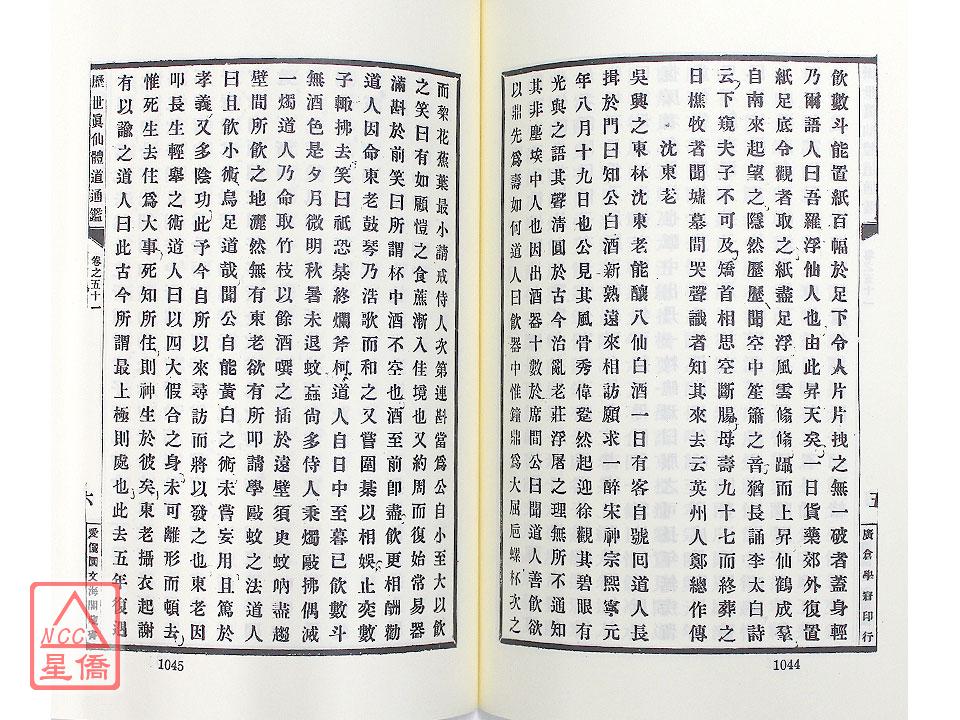 飲數斗能置紙百幅於足下令人片片拽之無一破者蓋身輕
乃爾語人曰吾羅浮仙人也由此昇天矣一日貨藥郊外復置
紙足底令觀者取之紙盡足浮風雲翛翛躡而上昇仙鶴成羣
自南來起望之隱然歷歷聞空中笙簫之音猶長誦李太白詩
云下窺夫子不可及矯首相思空斷腸母壽九十七而終葬之
日樵牧者聞墟墓間哭聲識者知其來去云英州人鄭總作傳
沈東老
吳興之東林沈東老能釀八仙白酒一日有客自號囘道人長
揖於門曰知公白酒新熟遠來相訪願求一醉宋神宗熙寧元
年八月十九日也公見其風骨秀偉跫然起迎徐觀其碧眼有
光與之語其聲清圓於古今治亂老莊浮屠之理無所不通知
其非塵埃中人也因出酒器十數於席間公曰聞道人善飲欲
以鼎先爲壽如何道人曰飲器中惟鐘鼎爲大屈巵螺杯次之
五
廣倉學宭印行
1044
而梨花蕉葉最小請戒侍人次第連斟當爲公自小至大以飲
之笑曰有如顧愷之食蔗漸入佳境也又約周而復始常易器
滿斟於前笑曰所謂杯中酒不空也酒至前卽盡飲更相酬勸
道人因命東老鼓琴乃浩歌而和之又嘗圍棊以相娛止奕數
子輙拂去笑曰祗恐棊終爛斧柯道人自日中至暮已飲數斗
無酒色是夕月微明秋暑未退蚊蝱尚多侍人秉燭敺拂偶滅
一燭道人乃命取竹枝以餘酒噀之插於遠壁須臾蚊蚋盡趨
壁間所飲之地灑然無有東老欲有所叩請學敺蚊之法道人
曰且飲小術烏足道哉聞公自能黃白之術未嘗妄用且篤於
孝義又多陰功此予今自所以來尋訪而將以發之也東老因
叩長生輕舉之術道人曰以四大假合之身未可離形而頓去
惟死生去住爲大事死知所住則神生於彼矣東老攝衣起謝
有以諭之道人曰此古今所謂最上極則處也此去五年復遇
歷世眞仙體道通鑑
卷之五十一
六
1045
NCC
星僑